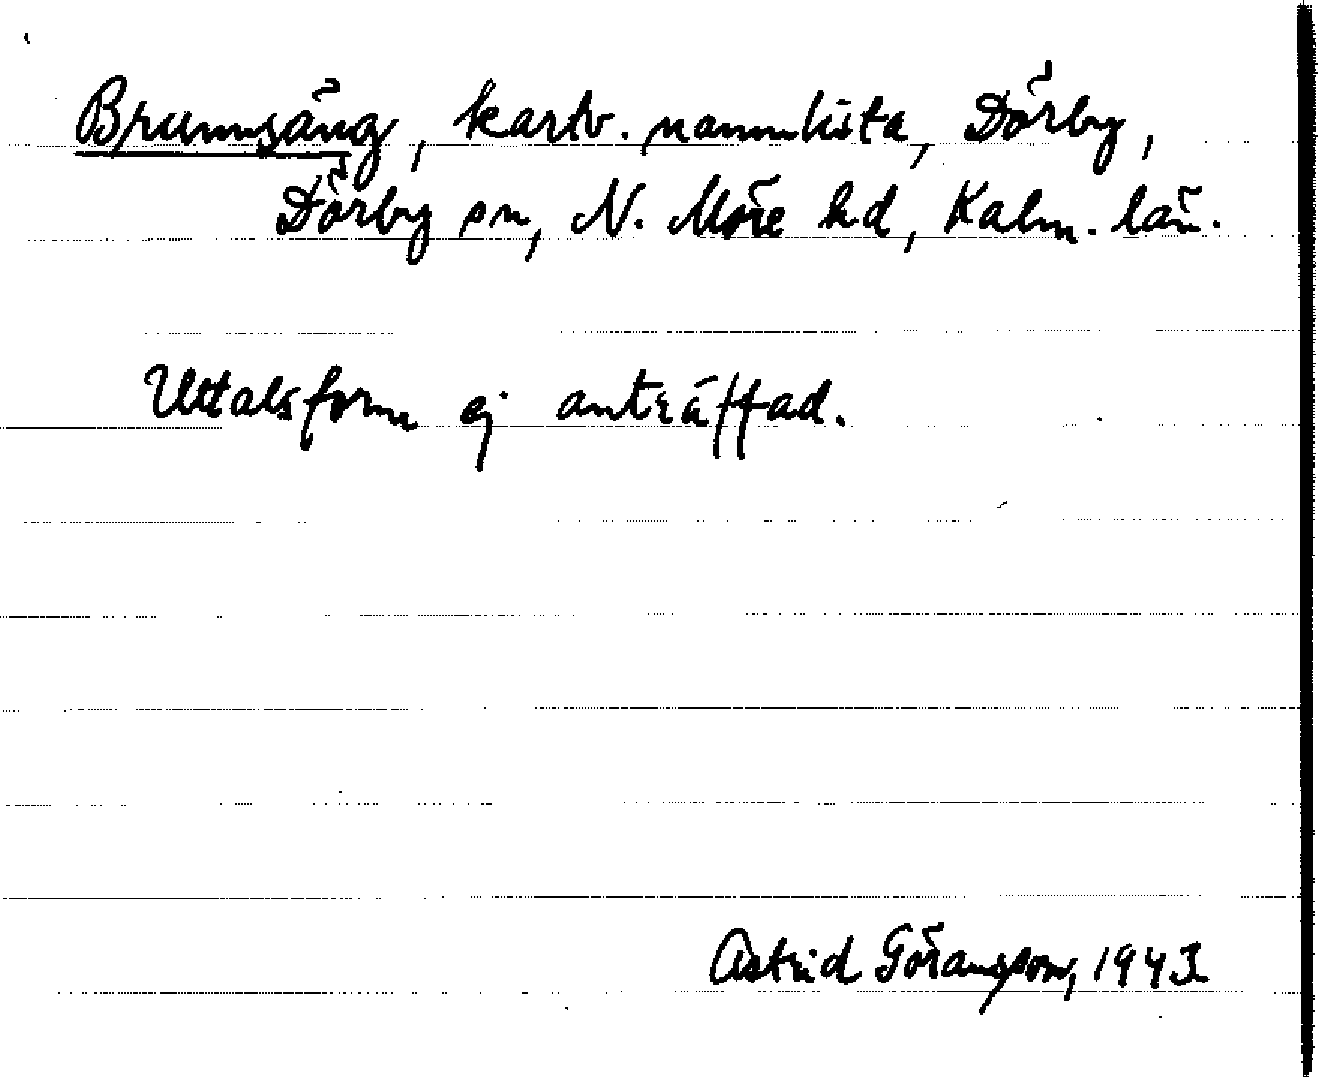 Brunnsäng, kartv. namnlista, Dörby,
Dörby sn, N. Möre hd, Kalm. län.
Uttalsform ej anträffad.
Astrid Göransson, 1943.